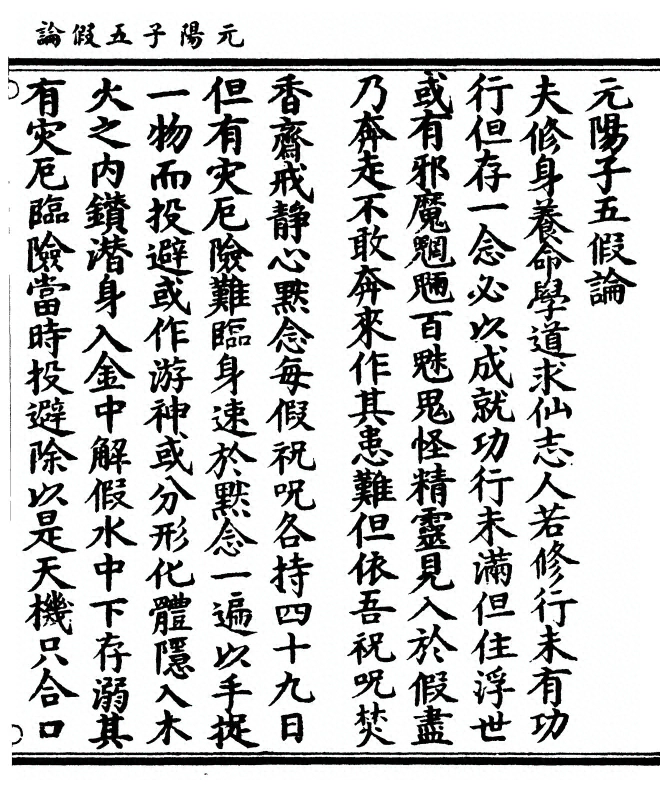 元陽子五假論
元陽子五假論
夫修身養命學道求仙志人若修行未有功
行但存一念必以成就功行未滿但住浮世
或有邪魔魍魎百魅鬼怪精靈見入於假盡
乃奔走不敢奔來作其患難但依吾祝呪焚
香齋戒静心黙念每假祝呪各持四十九日
但有灾厄險難臨身速於黙念一遍以手捉
一物而投避或作游神或分形化體隱入木
火之内鑽潜身入金中解假水中下存溺其
有灾厄臨險當時投避除以是天機只合口